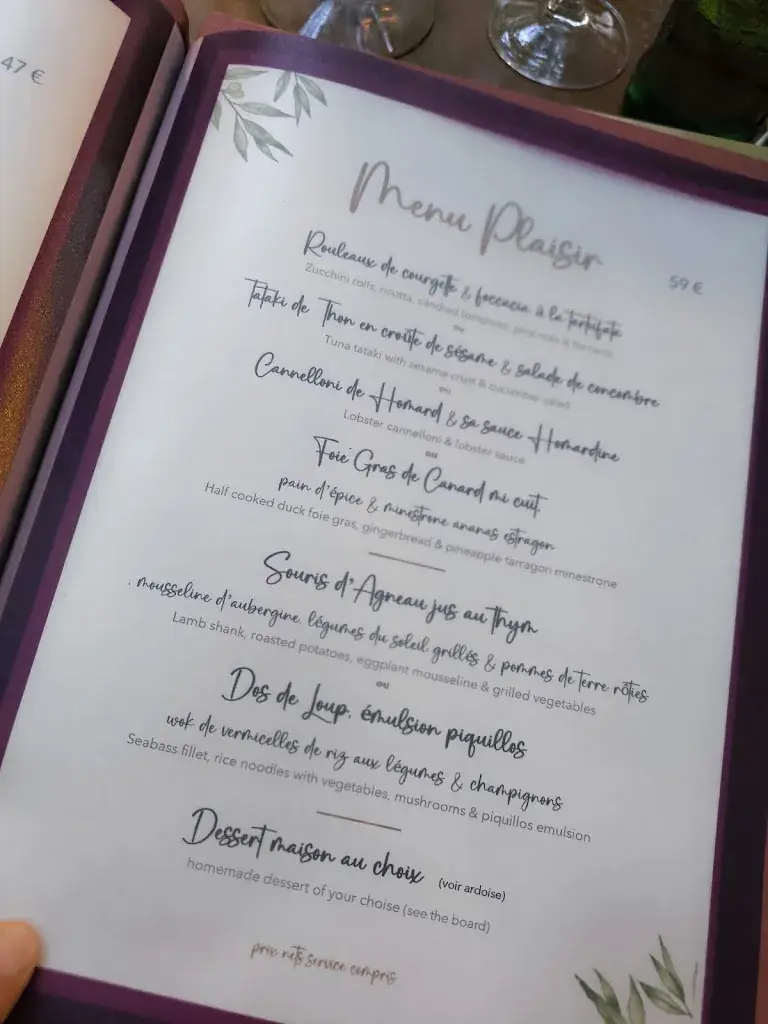 47 €
Menu Plaisir
59 €
Rouleaux de courgette & foccacia à la tartufata
Zucchini rolls, ricotta,
ou
Tataki de Thon en croûte de sésame & salade de concombre
Tuna tataki with sesame crust & cucumber salad
ou
Cannelloni de Homard & sa sauce Homardine
Lobster cannelloni & lobster sauce
ou
Foie Gras de Canard mi cuit,
pain d'épice & minestrone ananas estragon
Half cooked duck foie gras, gingerbread & pineapple tarragon minestrone
Souris d'Agneau jus au thym
, mousseline d'aubergine, légumes du soleil grillés & pommes de terre rôties
Lamb shank, roasted potatoes, eggplant mousseline & grilled vegetables
ou
Dos de Loup, émulsion piquillos
wok de vermicelles de riz aux légumes & champignons
Seabass fillet, rice noodles with vegetables, mushrooms & piquillos emulsion
Dessert maison au choix (voir ardoise)
homemade dessert of your choise (see the board)
prix nets service compris